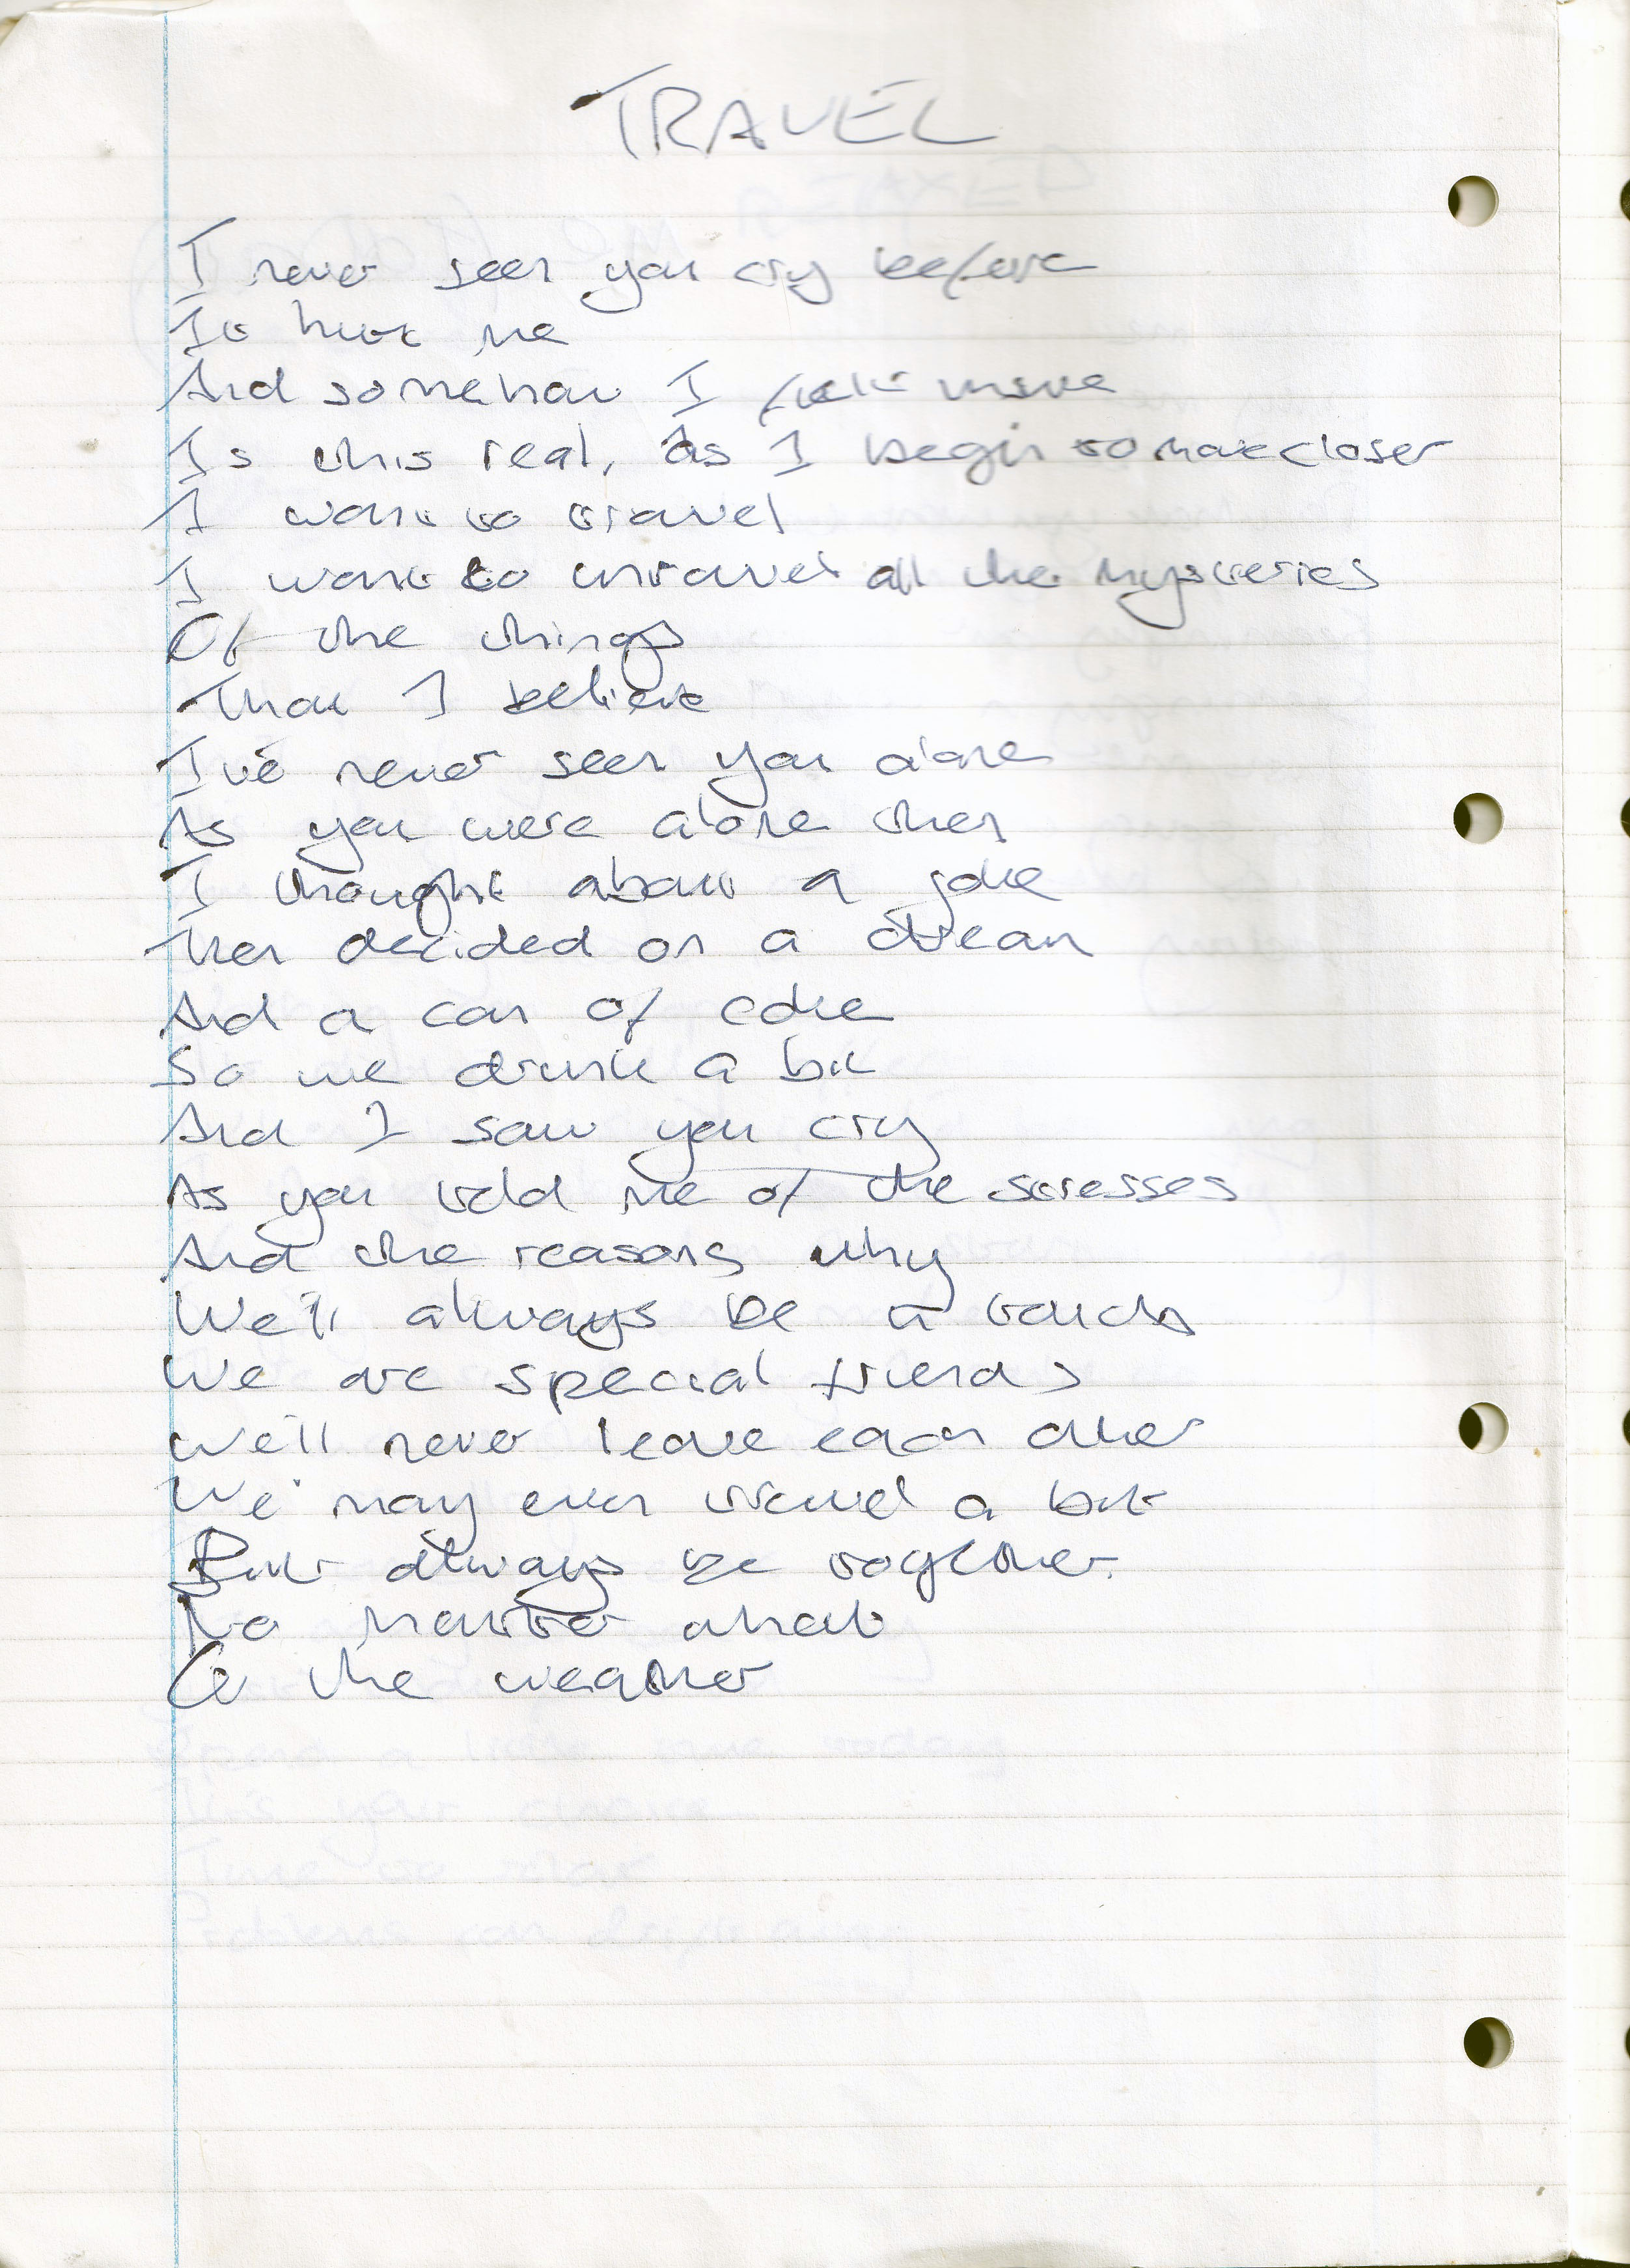 TRAVEL
I never seen you cry before
It hurt me
And somehow I felt more
Is this real, as I begin to move closer
I want to travel
I want to unravel all the mysteries
Of the things
That I believe
I've never seen you alone
As you were alone then
I thought about a joke
Then decided on a dream
And a can of coke
So we drunk a bit
And I saw you cry
As you told me of the stresses
And the reasons why
We'll always be a touch
We are special friends
We'll never leave each other
We may even travel a bit
But always be together.
No matter what
Or the weather